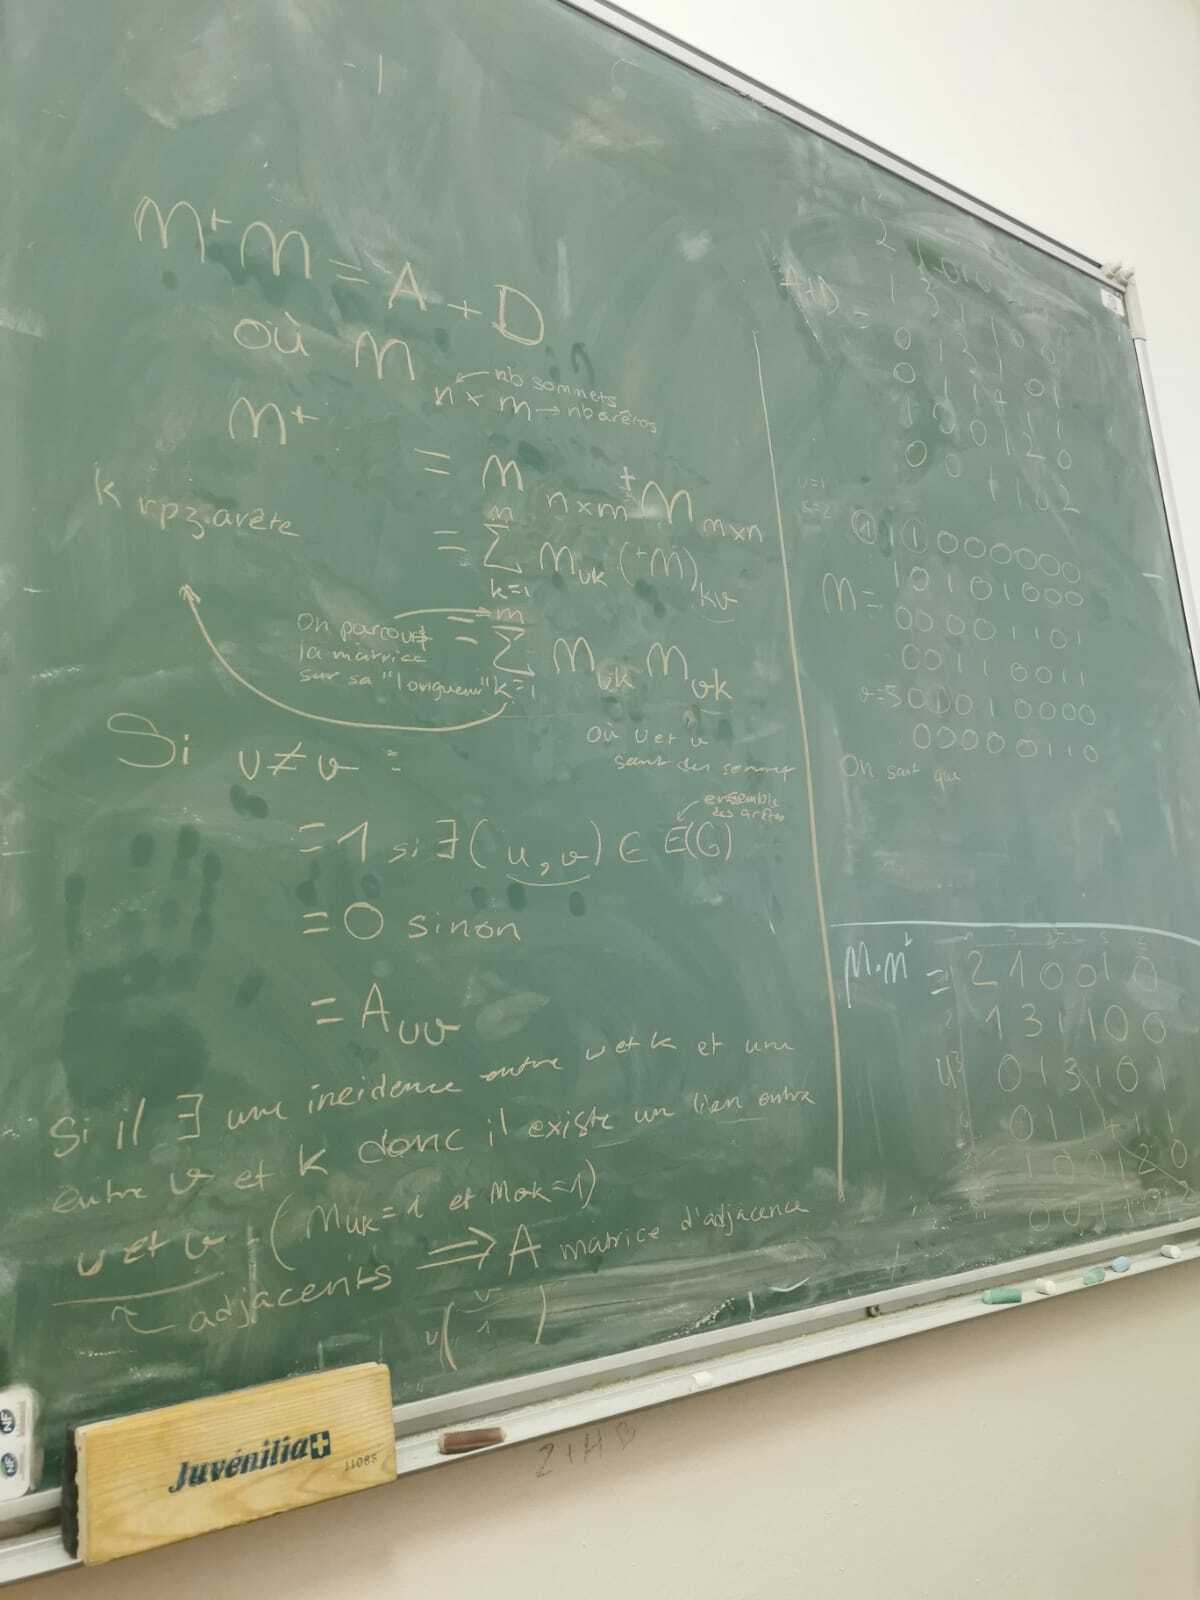 -1
M ᵗM = A + D
où M n × m
nb sommets
→ nb arêtes
M ᵗM
= M n×m ᵗM m×n
k rpz arête
= Σ k=1 Muk (ᵗM)kv
On parcourt
la matrice
sur sa "longueur"
= m Σ k=1 Muk Mvk
où u et v
sont des sommet
Si u ≠ v :
= 1 si ∃ (u, v) ∈ E(G)
ensemble
des arêtes
= 0 sinon
= Auv
Si il ∃ une incidence entre u et k et une
entre v et k donc il existe un lien entre
u et v. (Muk = 1 et Mvk = 1)
adjacents ⇒ A matrice d'adjacence
u ( v 1 )
A+D =
0 1 3 1 0 1
0 1 1 4 1 1
1 0 0 1 2 0
0 0 1 1 0 2
M =
1 1 0 0 0 0 0 0
1 0 1 0 1 0 0 0
0 0 0 0 1 1 0 1
0 0 1 1 0 0 1 1
v=5 0 1 0 1 0 0 0 0
0 0 0 0 0 1 1 0
On sait que
M.Mᵗ =
2 1 0 0 1 0
1 3 1 1 0 0
0 1 3 1 0 1
0 1 1 4 1 1
1 0 0 1 2 0
0 0 1 1 0 2
NF
NF
Juvénilia
11085
2+H B